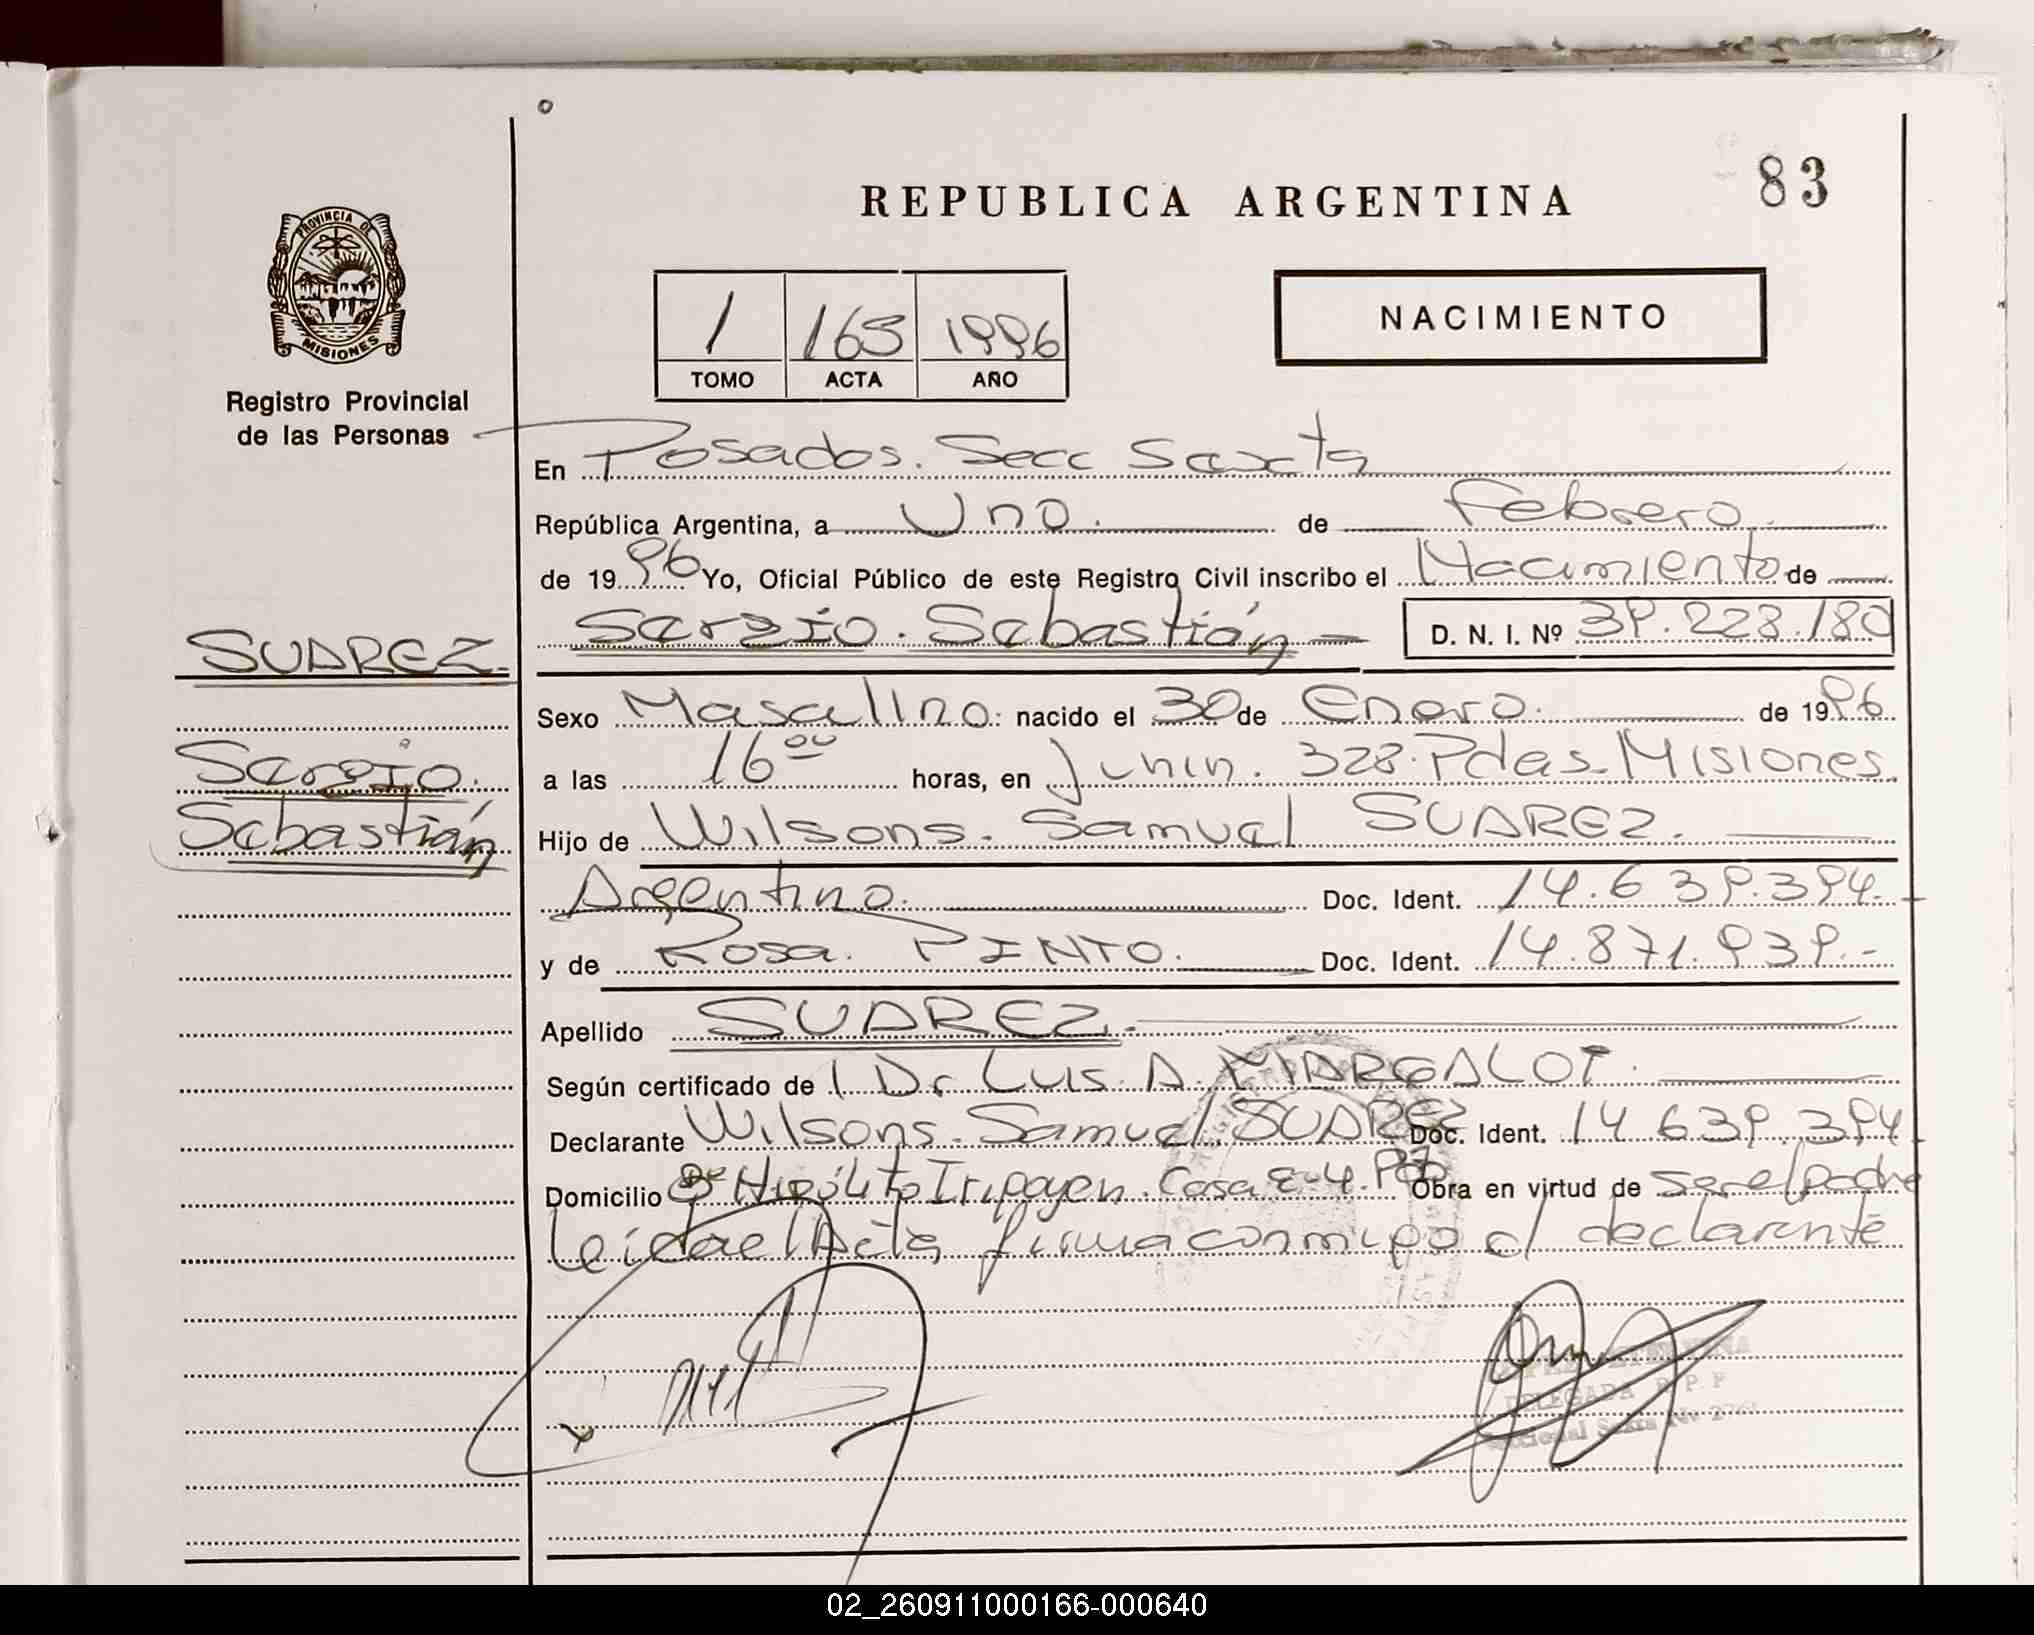 83
REPUBLICA ARGENTINA
PROVINCIA DE
MISIONES
NACIMIENTO
1 165 1996
TOMO ACTA AÑO
Registro Provincial
de las Personas
En Posadas. Secc Sexta
República Argentina, a Uno. de Febrero.
de 1996 Yo, Oficial Público de este Registro Civil inscribo el Nacimiento de
Sergio. Sebastián D. N. I. Nº 39.228.180
SUAREZ.
Sexo Masculino. nacido el 30 de Enero. de 1996
Sergio.
a las 16 00 horas, en Junin. 328. Pdas. Misiones.
Sebastián
Hijo de Wilsons. Samuel SUAREZ.
Argentino. Doc. Ident. 14.639.394.-
y de Rosa. PINTO. Doc. Ident. 14.871.939.-
Apellido SUAREZ.
Según certificado del Dr Luis. A. MARGALOT.
Declarante Wilsons. Samuel. SUAREZ Doc. Ident. 14.639.394
Domicilio Hipólito Iripoyen. Casa Obra en virtud de ser el padre
Leida el Acta, firma conmigo el declarante
DELEGADA R. P. P.
Seccional Sexta
02_260911000166-000640